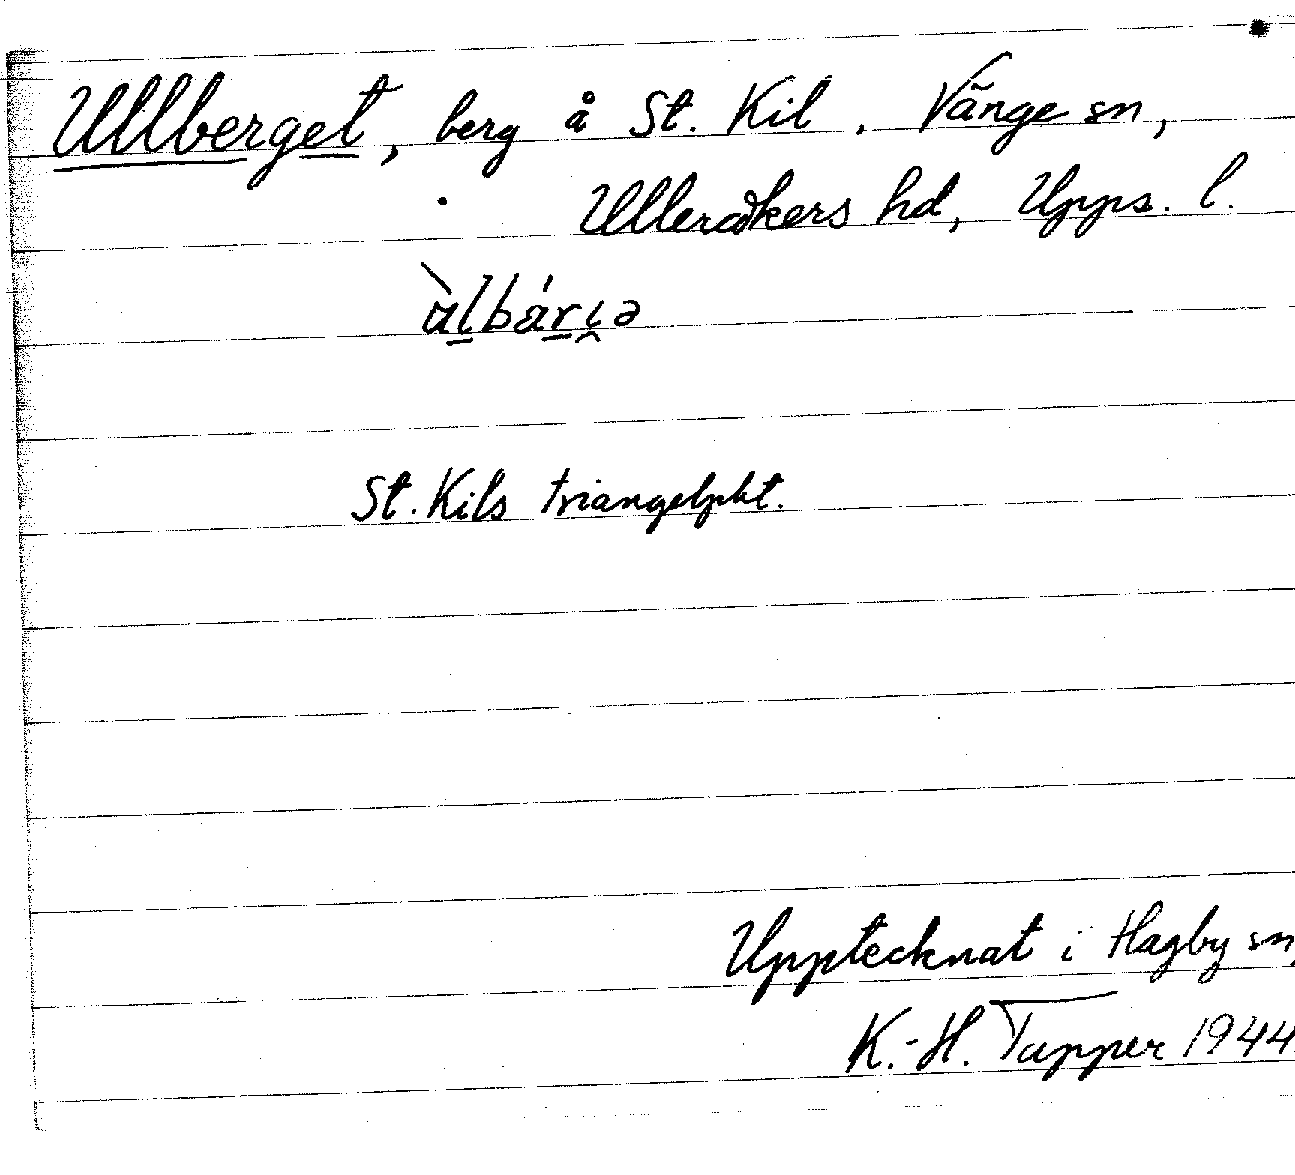 Ullberget, berg å St. Kil, Vänge sn,
Ulleråkers hd, Upps. l.
St. Kils triangelpkt.
Upptecknat i Hagby sn,
K.-H. Tapper 1944